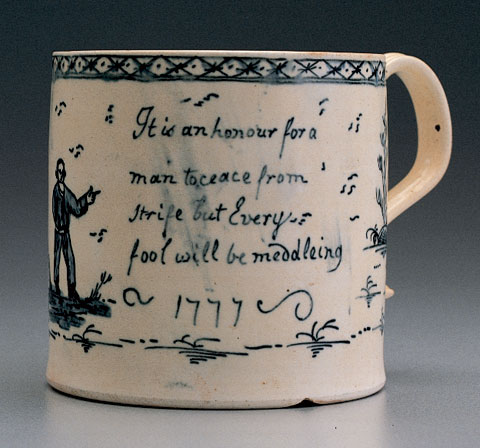 It is an honour for a
man to ceace from
strife but Every
fool will be meddleing
1777